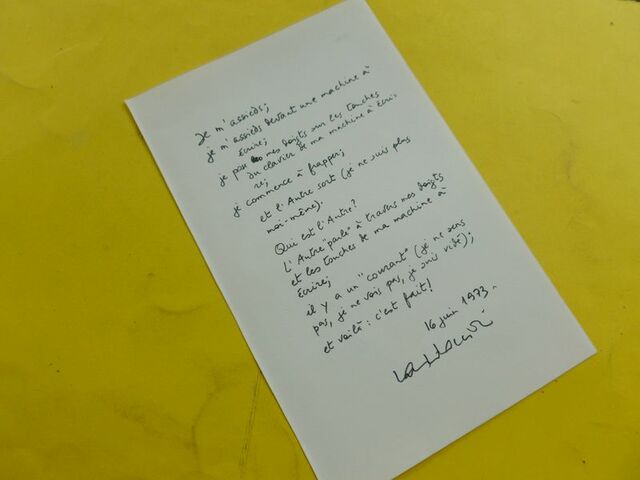 Je m'assieds;
je m'assieds devant une machine à
écrire;
je pose mes doigts sur les touches
du clavier de ma machine à écri-
re;
je commence à frapper;
et l'Autre sort (je ne suis plus
moi-même).
Qui est l'Autre?
L'Autre "parle" à travers mes doigts
et les touches de ma machine à
écrire;
il y a un "courant" (je ne sens
pas, je ne vois pas, je suis vide);
et voilà: c'est fait!
16 juin 1973.